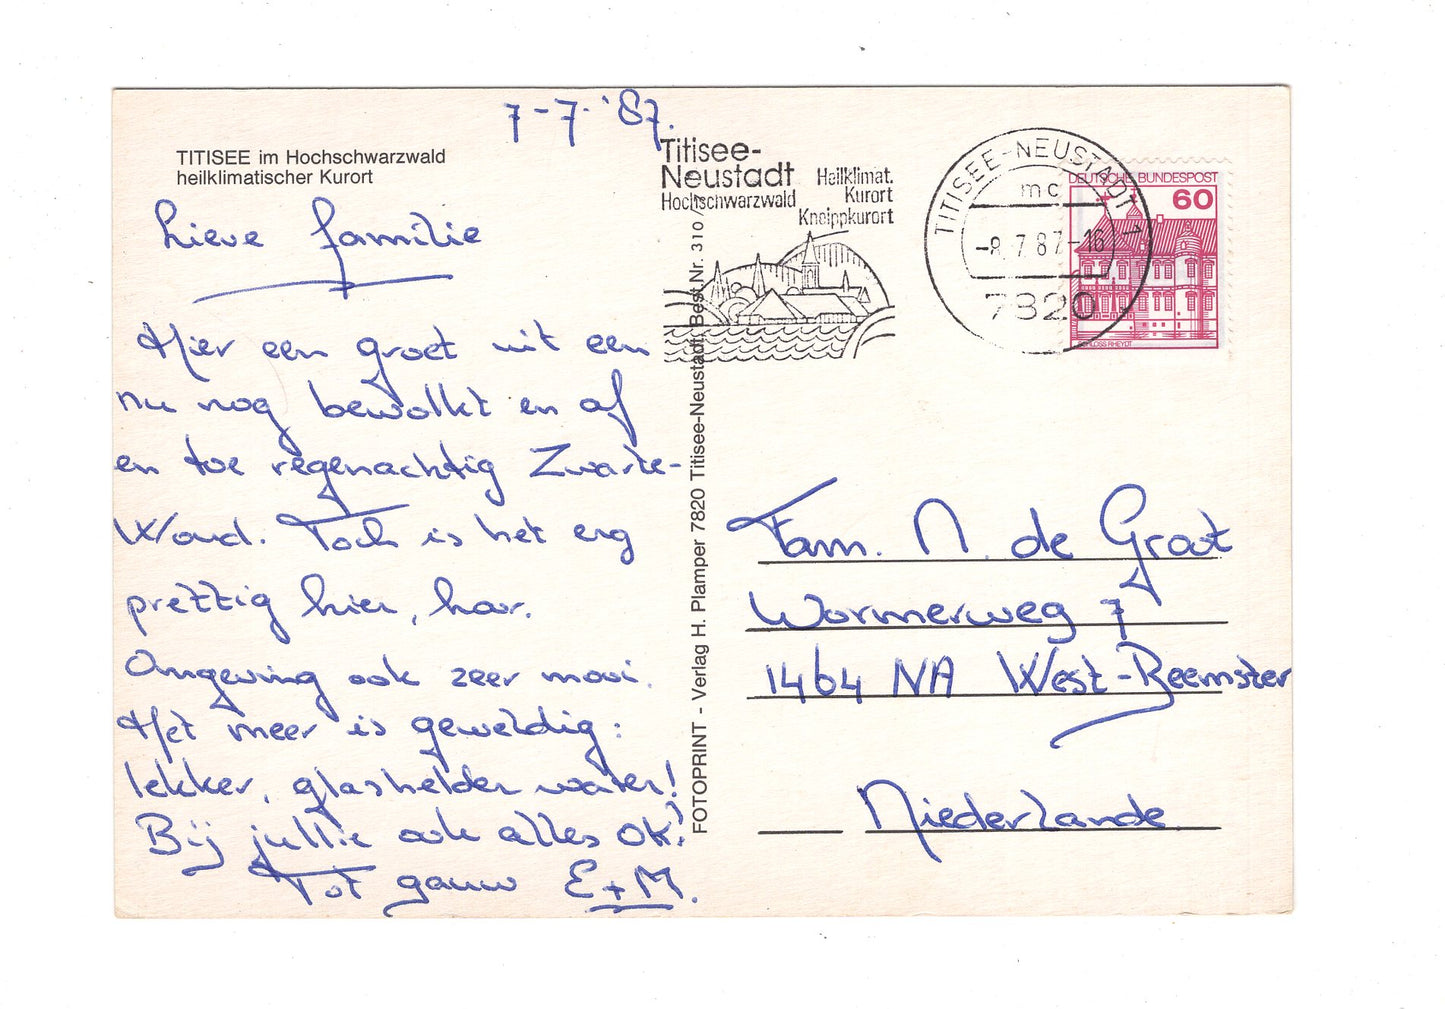 7-7-'87.
TITISEE im Hochschwarzwald
heilklimatischer Kurort
Lieve familie
Hier een groet uit een
nu nog bewolkt en af
en toe regenachtig Zwarte-
Woud. Toch is het erg
prettig hier, hoor.
Omgeving ook zeer mooi.
Het meer is geweldig:
lekker, glashelder water!
Bij jullie ook alles OK?
Tot gauw E+M.
FOTOPRINT - Verlag H. Plamper 7820 Titisee-Neustadt, Best.Nr. 310
Titisee-
Neustadt
Hochschwarzwald
Heilklimat.
Kurort
Kneippkurort
TITISEE-NEUSTADT 1
mc
-8.7.87-16
7820
DEUTSCHE BUNDESPOST
60
SCHLOSS RHEYDT
Fam. N. de Groot
Wormerweg 7
1464 NA West-Beemster
Niederlande